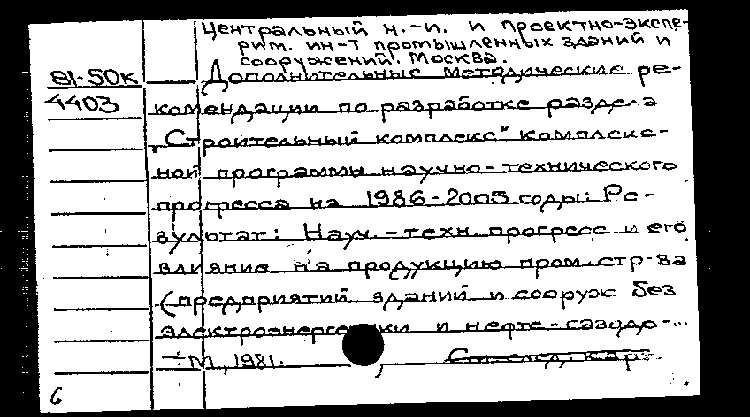 Центральный н.-и. и проектно-экспе-
рим. ин-т промышленных зданий и
сооружений. Москва.
81-50к Дополнительные методические ре-
4403 комендации по разработке раздела
„Строительный комплекс" комплекс-
ной программы научно-технического
прогресса на 1986-2005 годы: Ре-
зультат: Науч.-техн. прогресс и его
влияние на продукцию пром. стр-ва
(предприятий зданий и сооруж без
электроэнергетики и нефте-газодо-...
- М., 1981.
6